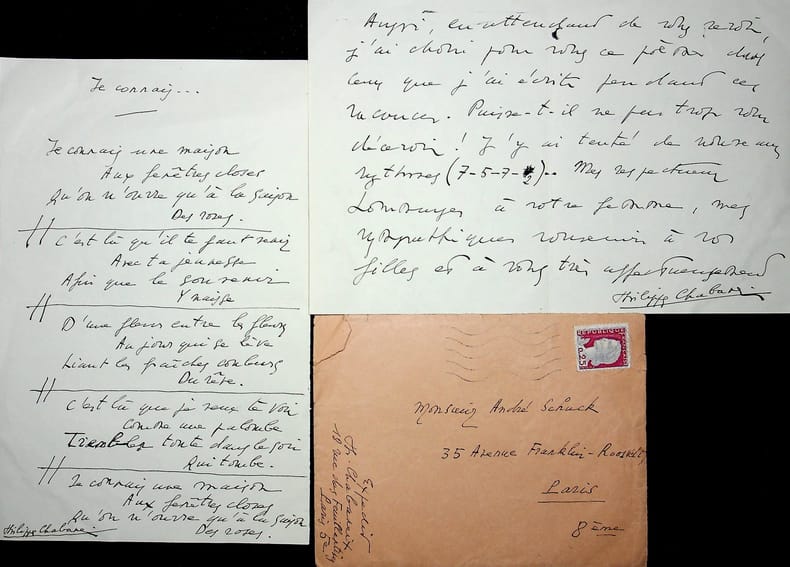 Je connais...
Je connais une maison
Aux fenêtres closes
Qu'on n'ouvre qu'à la saison
Des roses.
C'est là qu'il te faut venir
Avec ta jeunesse
Afin que le souvenir
Y naisse
D'une fleur entre les fleurs
Au jour qui se lève
Liant les fraîches couleurs
Du rêve.
C'est là que je veux te voir
Comme une palombe
Trembler toute dans le soir
Qui tombe.
Je connais une maison
Aux fenêtres closes
Qu'on n'ouvre qu'à la saison
Des roses.
Philippe Chabaneix
Aussi, en attendant de vous revoir,
j'ai choisi pour vous ce poème dans
ceux que j'ai écrits pendant ces
vacances. Puisse-t-il ne pas trop vous
décevoir ! J'y ai tenté de nouveaux
rythmes (7-5-7-2).. Mes respectueux
hommages à votre femme, mes
sympathiques souvenirs à vos
filles et à vous très affectueusement
Philippe Chabaneix
REPUBLIQUE FRANCAISE
0,25
Monsieur André Schuck
35 Avenue Franklin-Roosevelt
Paris
8ème
Expedit
Ph. Chabaneix
18 rue des
Paris 5e